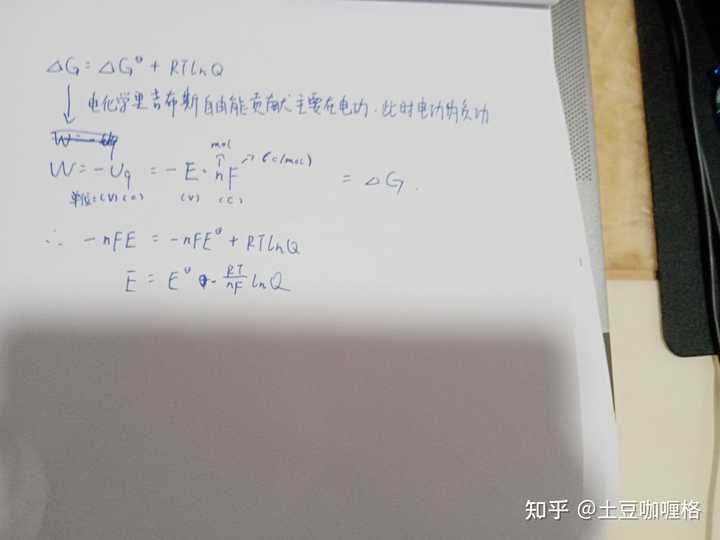 △G = △G° + RTlnQ
↓ 电化学里吉布斯自由能贡献主要在电功.此时电功为负功
W = -Uq = -E·nF = △G.
mol
(c/mol)
单位:(V)(c) (V) (C)
∴ -nFE = -nFE° + RTlnQ
E = E° - RT/nF lnQ
知乎 @土豆咖喱格